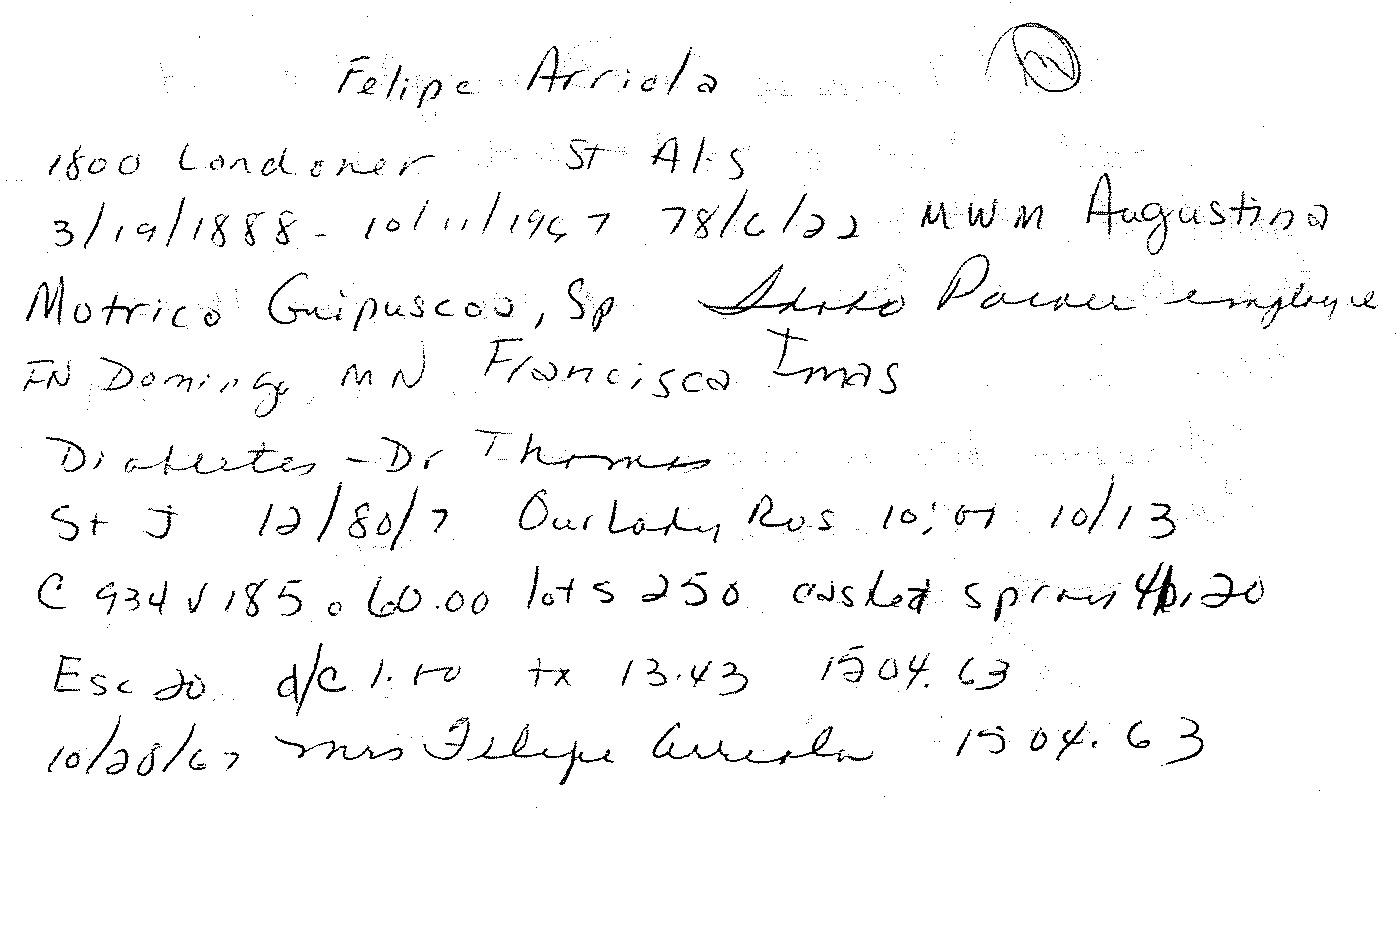 Felipe Arriola
1800 Londoner St Al's
3/19/1888 - 10/11/1967 78/6/22 MWM Augustina
Motrico Guipuscoa, Sp Idaho Power employee
FN Domingo MN Francisca Imas
Diabetes - Dr Thomas
St J 12/80/7 Our Lady Ros 10:01 10/13
C 934 v 185 o 60.00 lots 250 casket sprays .20
Esc 20 d/c 1.50 tx 13.43 1504.63
10/20/67 Mrs Felipe Arriola 1504.63